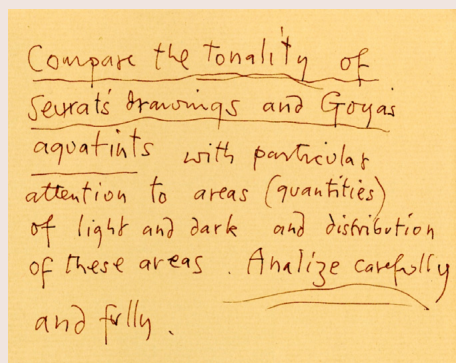 Compare the tonality of
Seurats drawings and Goyas
aquatints with particular
attention to areas (quantities)
of light and dark and distribution
of these areas. Analize carefully
and fully.